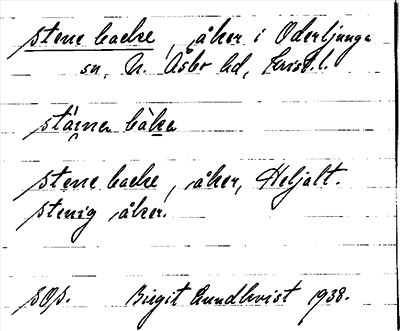 stene backe, åker i Oderljunga
sn, N. Åsbo hd, Krist. l.
stäɪna bàkɐ
stene backe, åker, Heljalt.
stenig åker.
SOS. Birgit Lundkvist 1938.